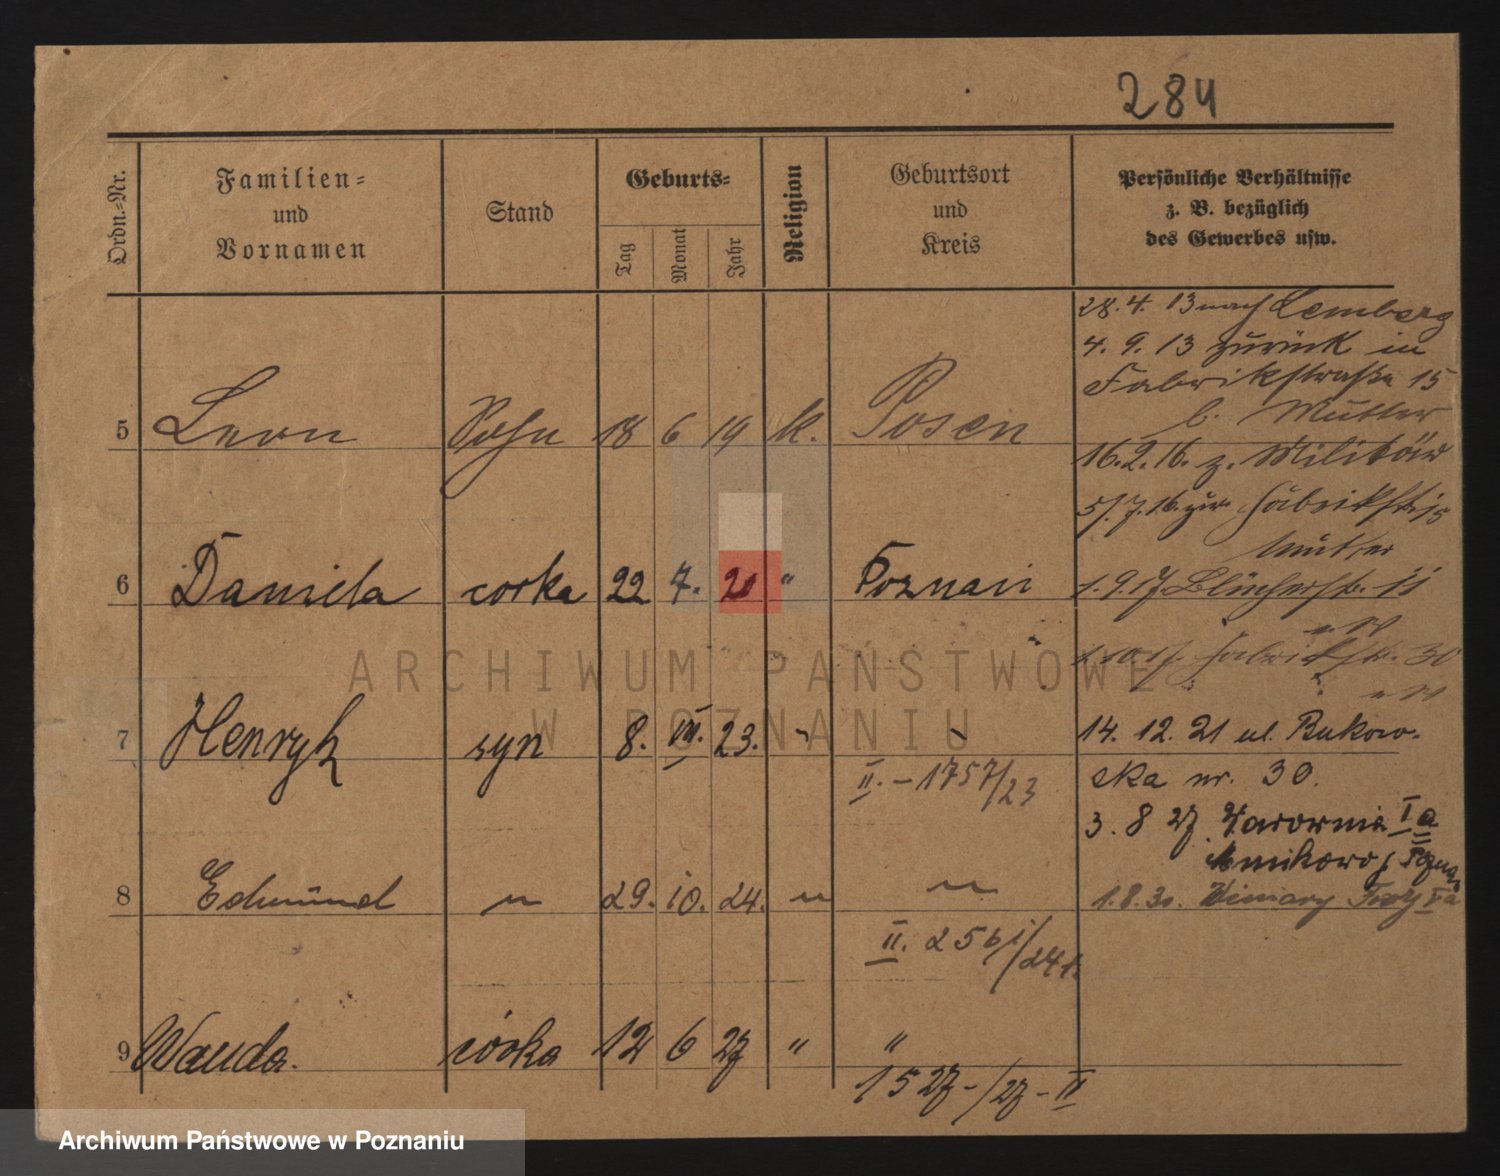 284
Ordn.-Nr. Familien- und Vornamen Stand Geburts- Tag Monat Jahr Religion Geburtsort und Kreis Persönliche Verhältnisse z. B. bezüglich des Gewerbes usw.
28. 4. 13 nach Lemberg
4. 9. 13 zurück in
Fabrikstraße 15
b. Mutter
5 Leon Sohn 18 6 19 k. Posen
16. 2. 16. z. Militär
5/. 7. 16. zur Fabrikstr. 15
Mutter
6 Daniela corka 22 7. 20 " Poznań
1. 9. 17. Blücherstr. 11
Fabrikstr. 30
7 Henryk syn 8. VII. 23. "
14. 12. 21 ul. Bukow-
ska nr. 30.
II. - 1757/23
3. 8 27 Ławica
8 Edmund " 29. 10. 24. " "
1. 8. 30. Winiary
II. 2561/24
9 Wanda. córka 12 6 27 " "
1527-/27-II
ARCHIWUM PAŃSTWOWE
W POZNANIU
Archiwum Państwowe w Poznaniu